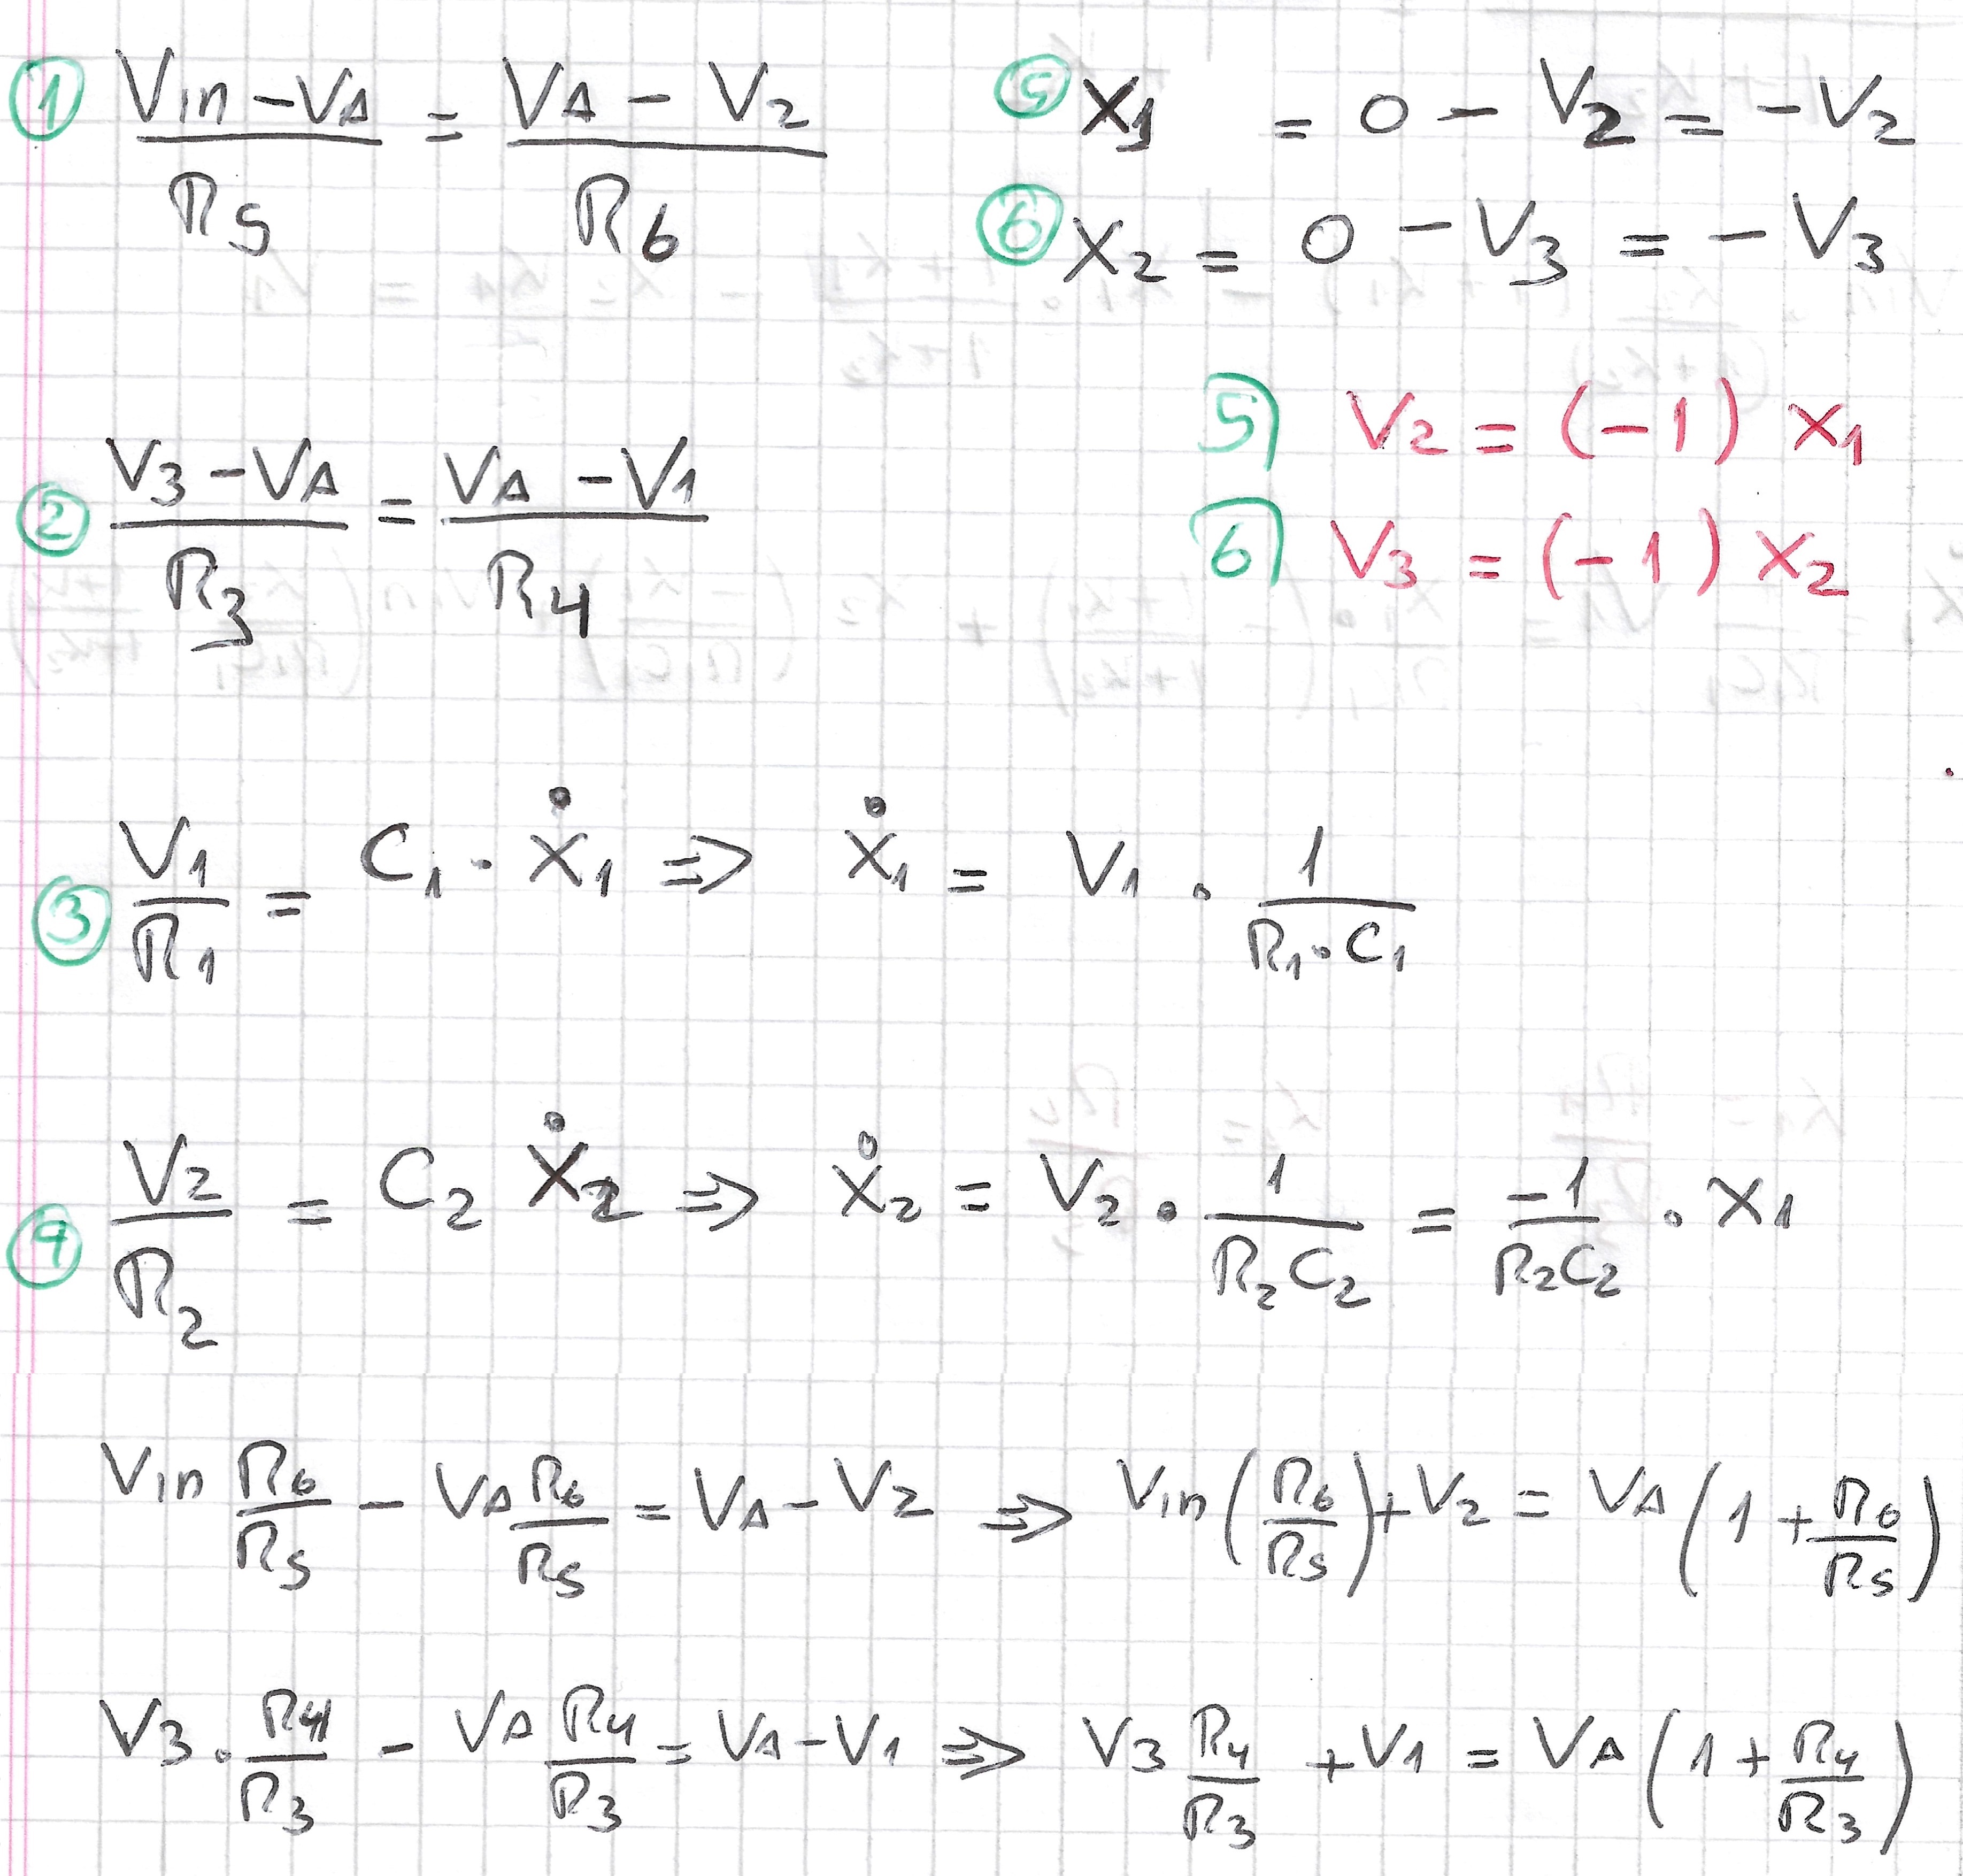 ① (Vin - VA)/R5 = (VA - V2)/R6
⑤ X1 = 0 - V2 = -V2
⑥ X2 = 0 - V3 = -V3
5) V2 = (-1) X1
6) V3 = (-1) X2
② (V3 - VA)/R3 = (VA - V1)/R4
③ V1/R1 = C1 · Ẋ1 ⇒ Ẋ1 = V1 · 1/(R1·C1)
④ V2/R2 = C2 Ẋ2 ⇒ Ẋ2 = V2 · 1/(R2C2) = -1/(R2C2) · X1
Vin R6/R5 - VA R6/R5 = VA - V2 ⇒ Vin(R6/R5) + V2 = VA(1 + R6/R5)
V3 · R4/R3 - VA R4/R3 = VA - V1 ⇒ V3 R4/R3 + V1 = VA(1 + R4/R3)